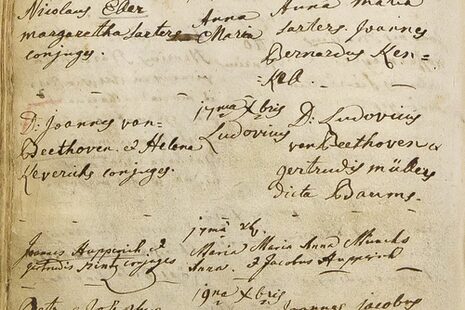 Nicolaus Eber
margaretha Sarters
conjuges.
Anna
Maria
Anna maria
Sarters. Joannes
Bernardus Ken=
D: Joannes van=
Beethoven. & Helena
Keverichs conjuges.
17ma Xbris
Ludovicus
D: Ludovicus
van Beethoven &
gertrudis müllers
dicta Baums.
Joannes Hupperich, et
Gertrudis conjuges
17mâ xb.
Maria
Anna.
Maria Anna Munchs
& Jacobus Hupperich
19na Xbris
Joannes jacobus